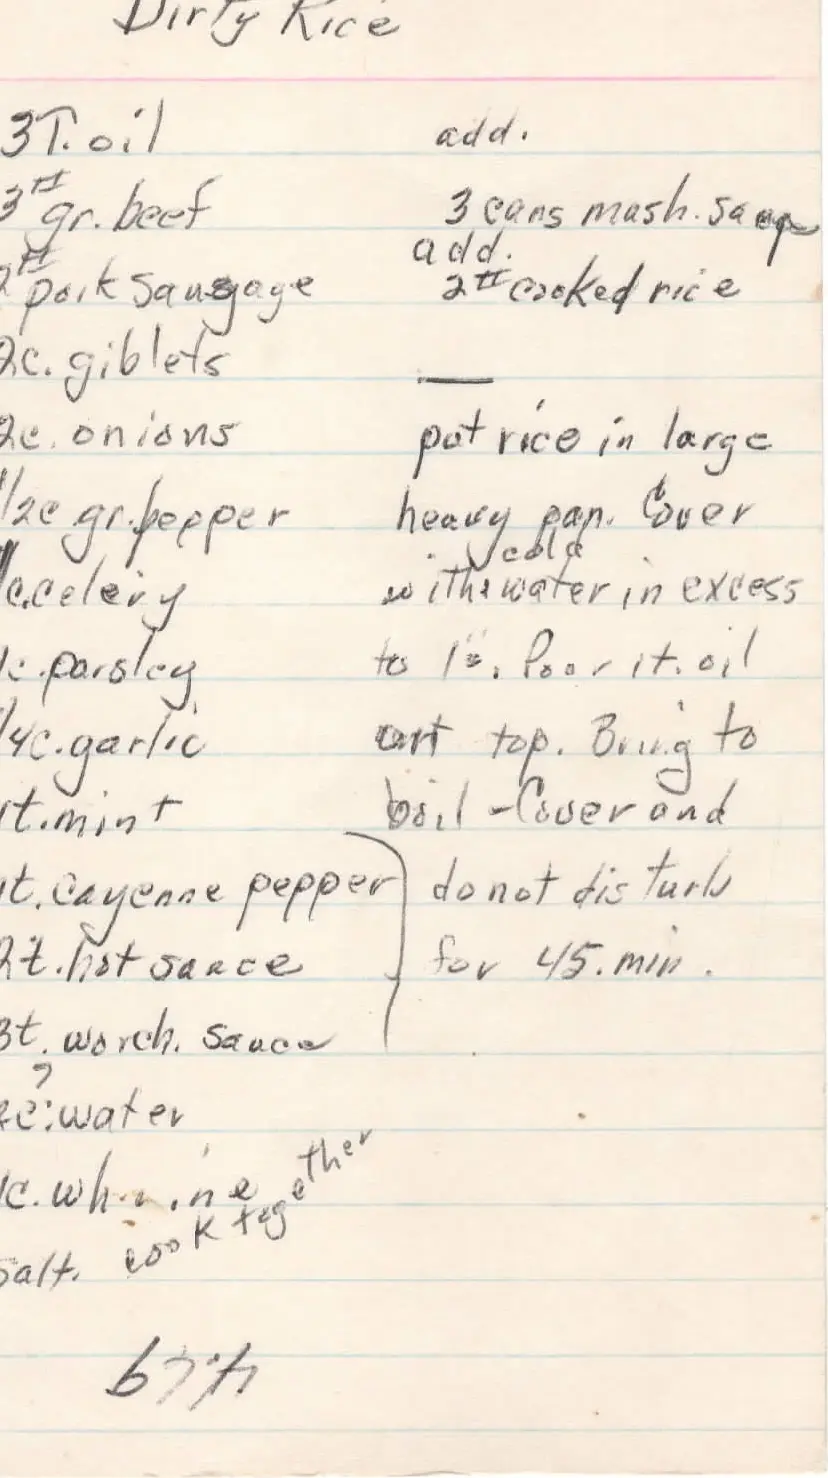 Dirty Rice
3T. oil
3# gr. beef
2# pork sausgage
2c. giblets
2c. onions
1/2c gr. pepper
c. celery
1c. parsley
1/4c. garlic
1t. mint
1t. cayenne pepper
2t. hot sauce
3t. worch. sauce
?
2c. water
1c. wh. ine
salt. cook together
add.
3 cans mush. soup
add.
2# cooked rice
put rice in large
heavy pan. Cover
cold
with water in excess
to 1". Poor 1t. oil
top. Bring to
boil - Cover and
do not disturb
for 45. min.